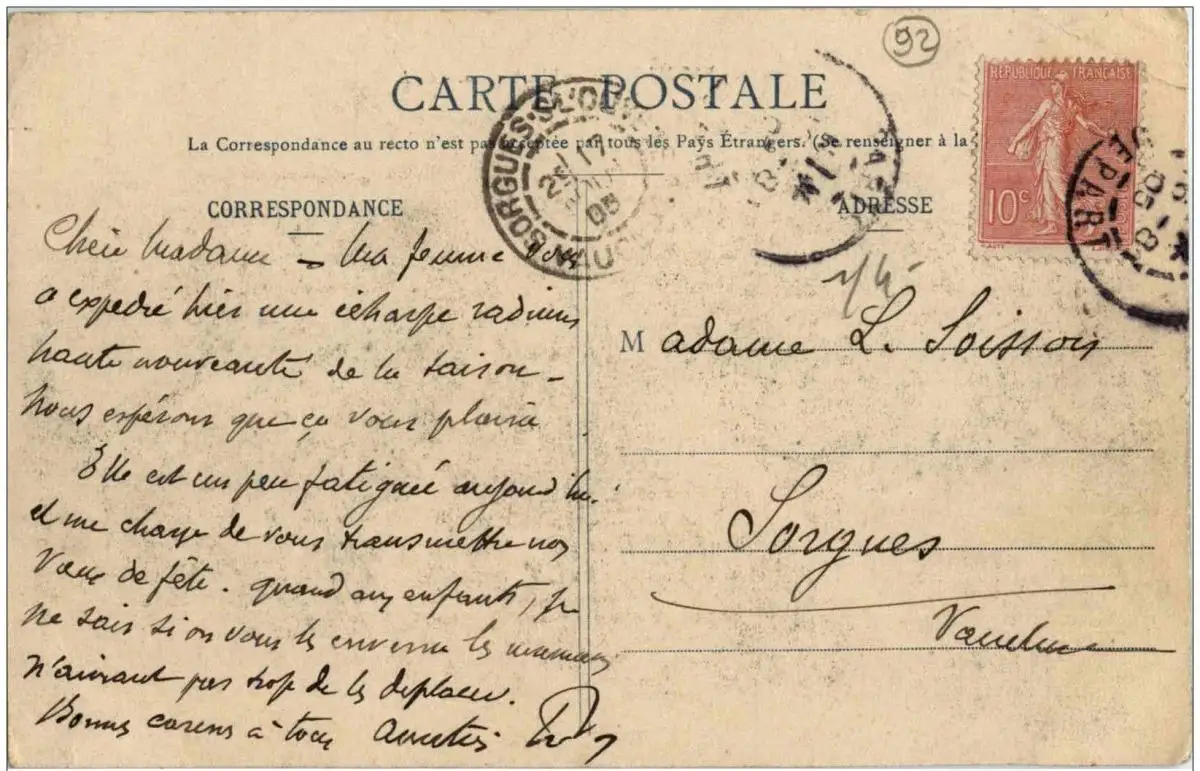 92
CARTE POSTALE
La Correspondance au recto n'est pas acceptée par tous les Pays Étrangers. (Se renseigner à la
CORRESPONDANCE
ADRESSE
RÉPUBLIQUE FRANÇAISE
10c
SORGUES-S-L'OU
17
05
DEPART
Chère Madame _ Ma femme vous
a expédié hier une écharpe radium
haute nouveauté de la saison _
Nous espérons que ça vous plaira
Elle est un peu fatiguée aujourd'hui
et me charge de vous transmettre nos
vœux de fête. quand aux enfants, je
ne sais si on vous les enverra les mamans
n'aimant pas trop de les déplacer.
Bonnes caresses à tous Amitiés
Madame L. Soisson
Sorgues
Vaucluse